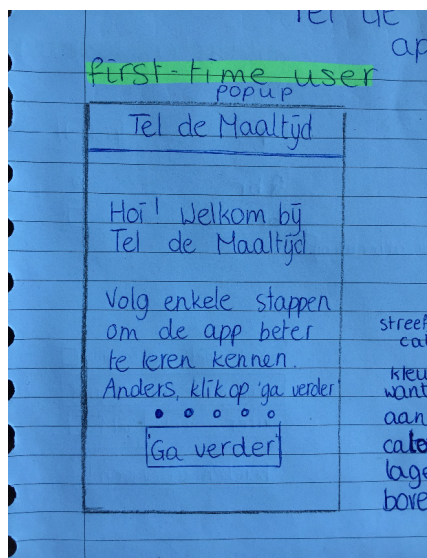 Tel de
ap
first-time user
popup
Tel de Maaltijd
Hoi! Welkom bij
Tel de Maaltijd
Volg enkele stappen
om de app beter
te leren kennen.
Anders, klik op 'ga verder'
'Ga verder'
streef
cal
kleu
want
aan
calo
lage
bove